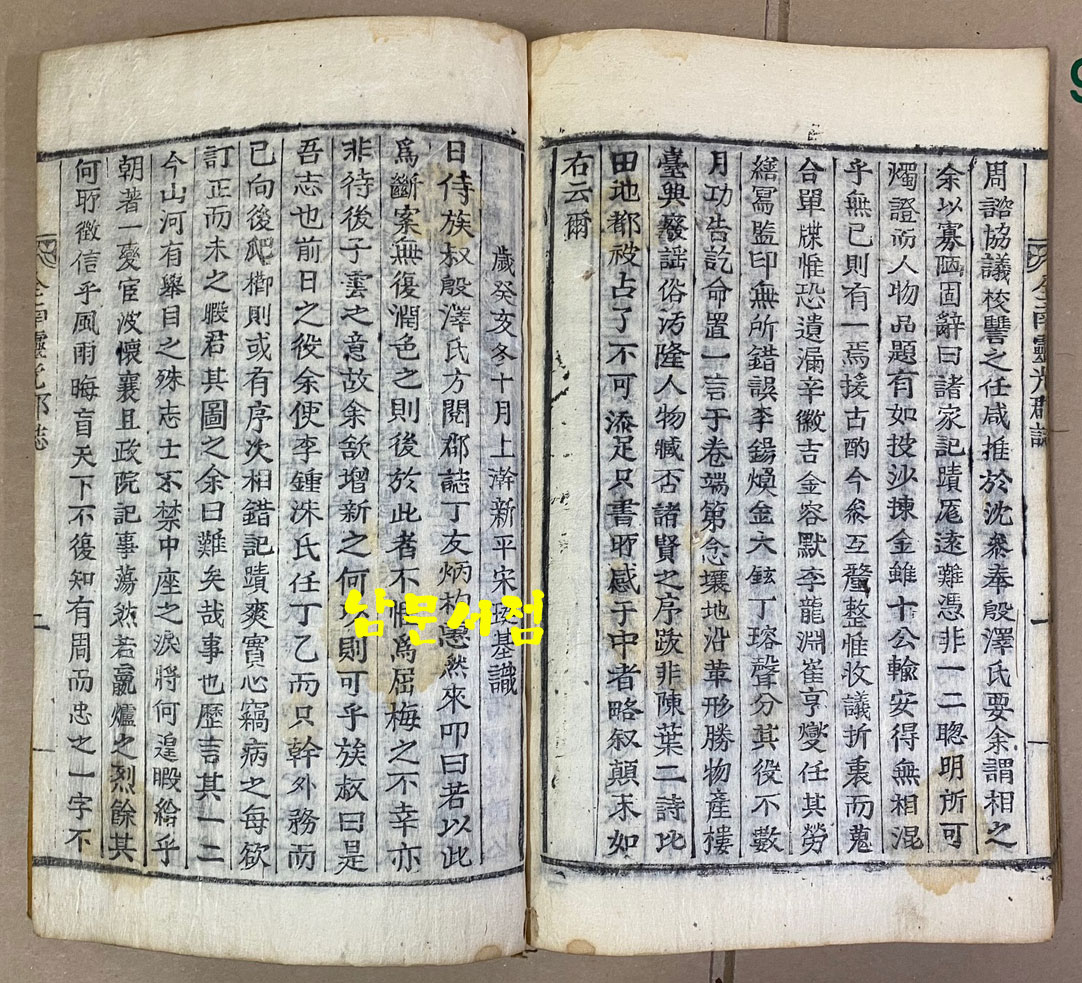 周諮協議校讐之任咸推於沈叅奉殷澤氏要余謂相之
余以寡陋固辭曰諸家記蹟厖遠難憑非一二聰明所可
燭證而人物品題有如投沙揀金雖十公輸安得無相混
乎無已則有一焉援古酌今叅互釐整惟收議折衷而蒐
合單牒惟恐遺漏辛徽吉金容默李龍淵崔亨燮任其勞
繕寫監印無所錯誤李鍚煥金大鉉丁瑢聲分其役不數
月功告訖命置一言于卷端第念壤地沿革形勝物產樓
臺興廢謠俗汚隆人物臧否諸賢之序跋非陳葉二詩比
田地都被占了不可添足只書所感于中者略叙顛末如
右云爾
全南靈光郡誌
歲癸亥冬十月上澣新平宋 基識
日侍族叔殷澤氏方閱郡誌丁友炳 然來叩曰若以此
爲斷案無復潤色之則後於此者不 爲屈梅之不幸亦
非待後子雲之意故余欲增新之何 則可乎族叔曰是
吾志也前日之役余使李鍾洙氏任丁乙而只幹外務而
已向後爬櫛則或有序次相錯記蹟爽實心竊病之每欲
訂正而未之暇君其圖之余曰難矣哉事也歷言其一二
今山河有擧目之殊志士不禁中座之淚將何遑暇給乎
朝著一變宦波懷襄且政院記事蕩然若嬴爐之烈餘其
何所徵信乎風雨晦盲天下不復知有周而忠之一字不
全南靈光郡誌
二
남문서점